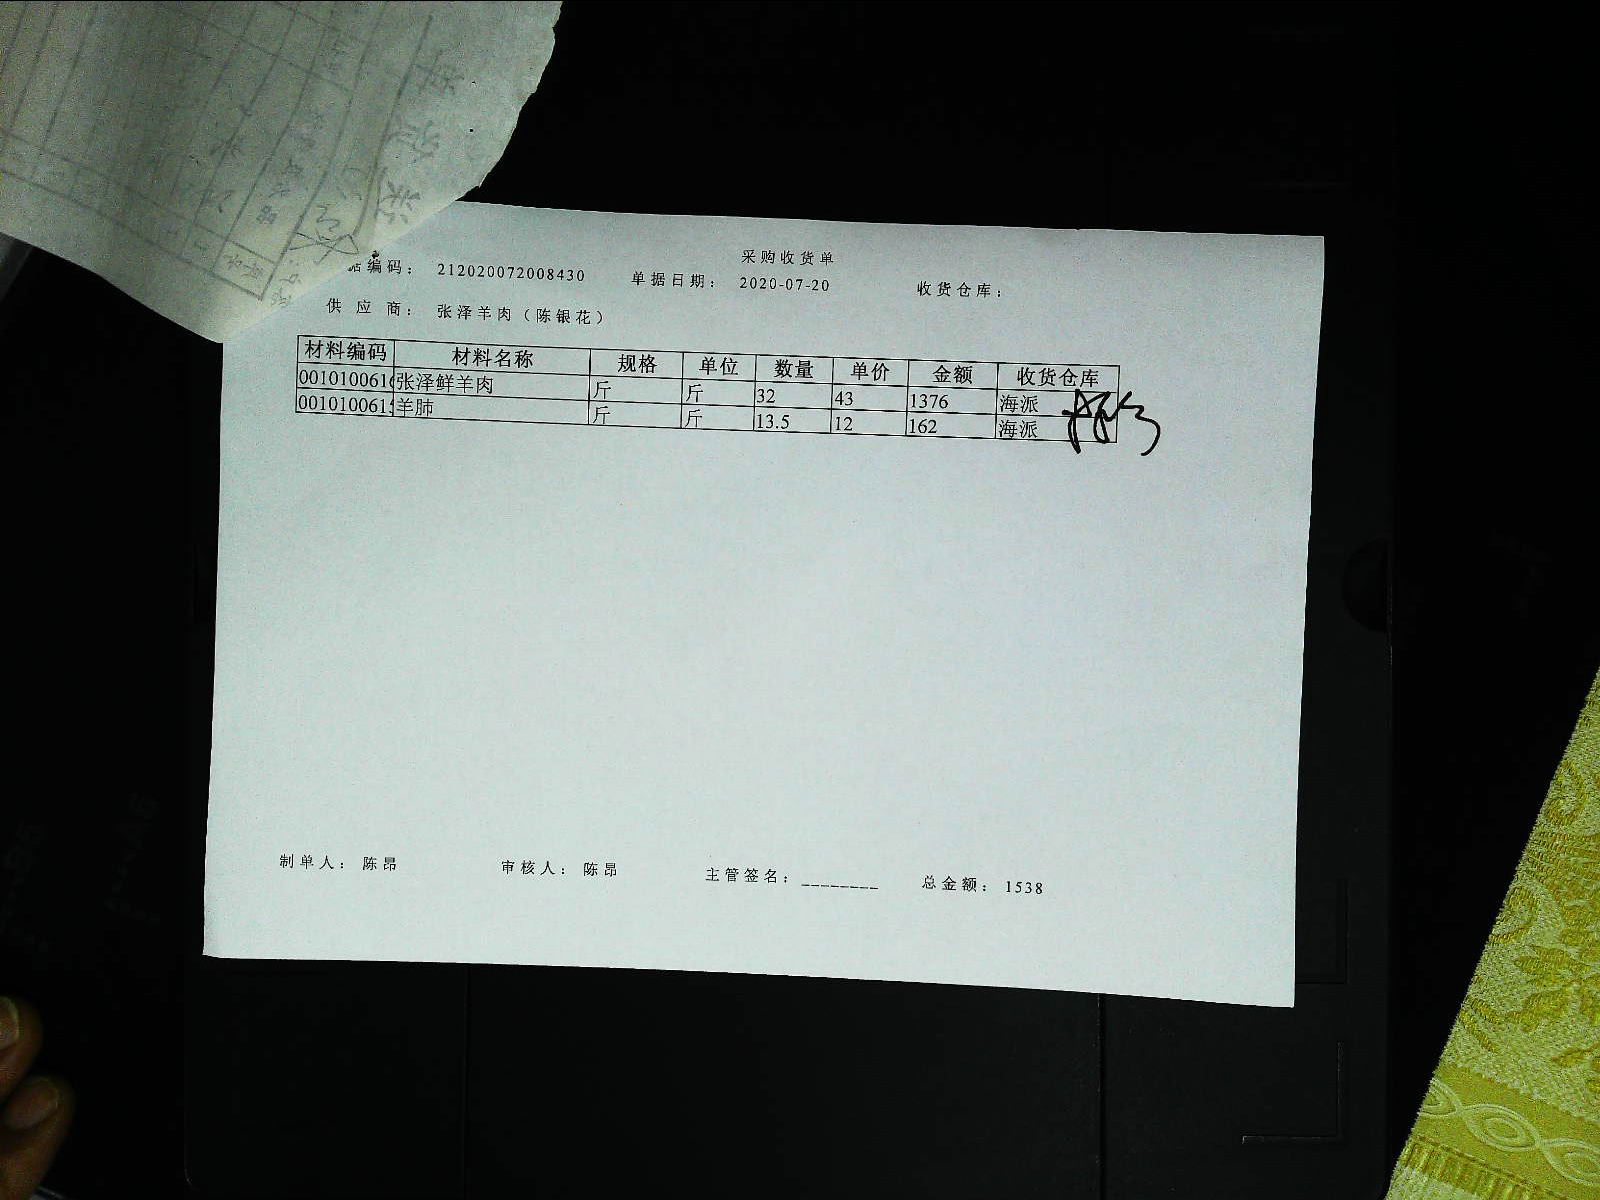 采购收货单
据编码： 212020072008430 单据日期： 2020-07-20 收货仓库：
供 应 商： 张泽羊肉（陈银花）
材料编码 材料名称 规格 单位 数量 单价 金额 收货仓库
001010061 张泽鲜羊肉 斤 斤 32 43 1376 海派
001010061 羊肺 斤 斤 13.5 12 162 海派
制单人： 陈昂 审核人： 陈昂 主管签名：________ 总金额： 1538